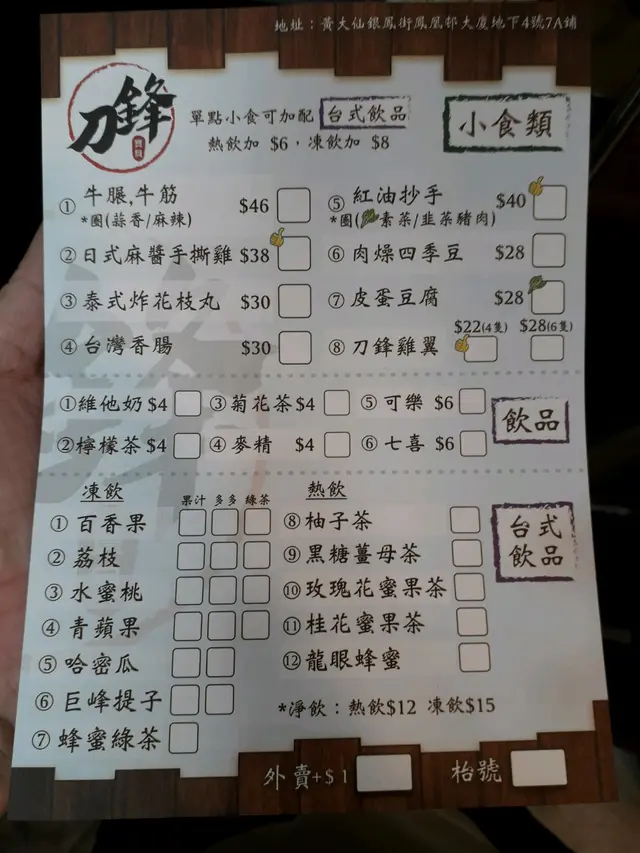 地址：黃大仙銀鳳街鳳凰邨大廈地下4號7A鋪
刀鋒
單點小食可加配 台式飲品
熱飲加 $6，凍飲加 $8
小食類
① 牛脤,牛筋 $46
*圈(蒜香/麻辣)
② 日式麻醬手撕雞 $38
③ 泰式炸花枝丸 $30
④ 台灣香腸 $30
⑤ 紅油抄手 $40
*圈(素菜/韭菜豬肉)
⑥ 肉燥四季豆 $28
⑦ 皮蛋豆腐 $28
⑧ 刀鋒雞翼 $22(4隻) $28(6隻)
①維他奶 $4 ③菊花茶 $4 ⑤可樂 $6
②檸檬茶 $4 ④麥精 $4 ⑥七喜 $6
飲品
凍飲
果汁 多多 綠茶
① 百香果
② 荔枝
③ 水蜜桃
④ 青蘋果
⑤ 哈密瓜
⑥ 巨峰提子
⑦ 蜂蜜綠茶
熱飲
⑧ 柚子茶
⑨ 黑糖薑母茶
⑩ 玫瑰花蜜果茶
⑪ 桂花蜜果茶
⑫ 龍眼蜂蜜
*淨飲：熱飲$12 凍飲$15
台式
飲品
外賣+$1
枱號